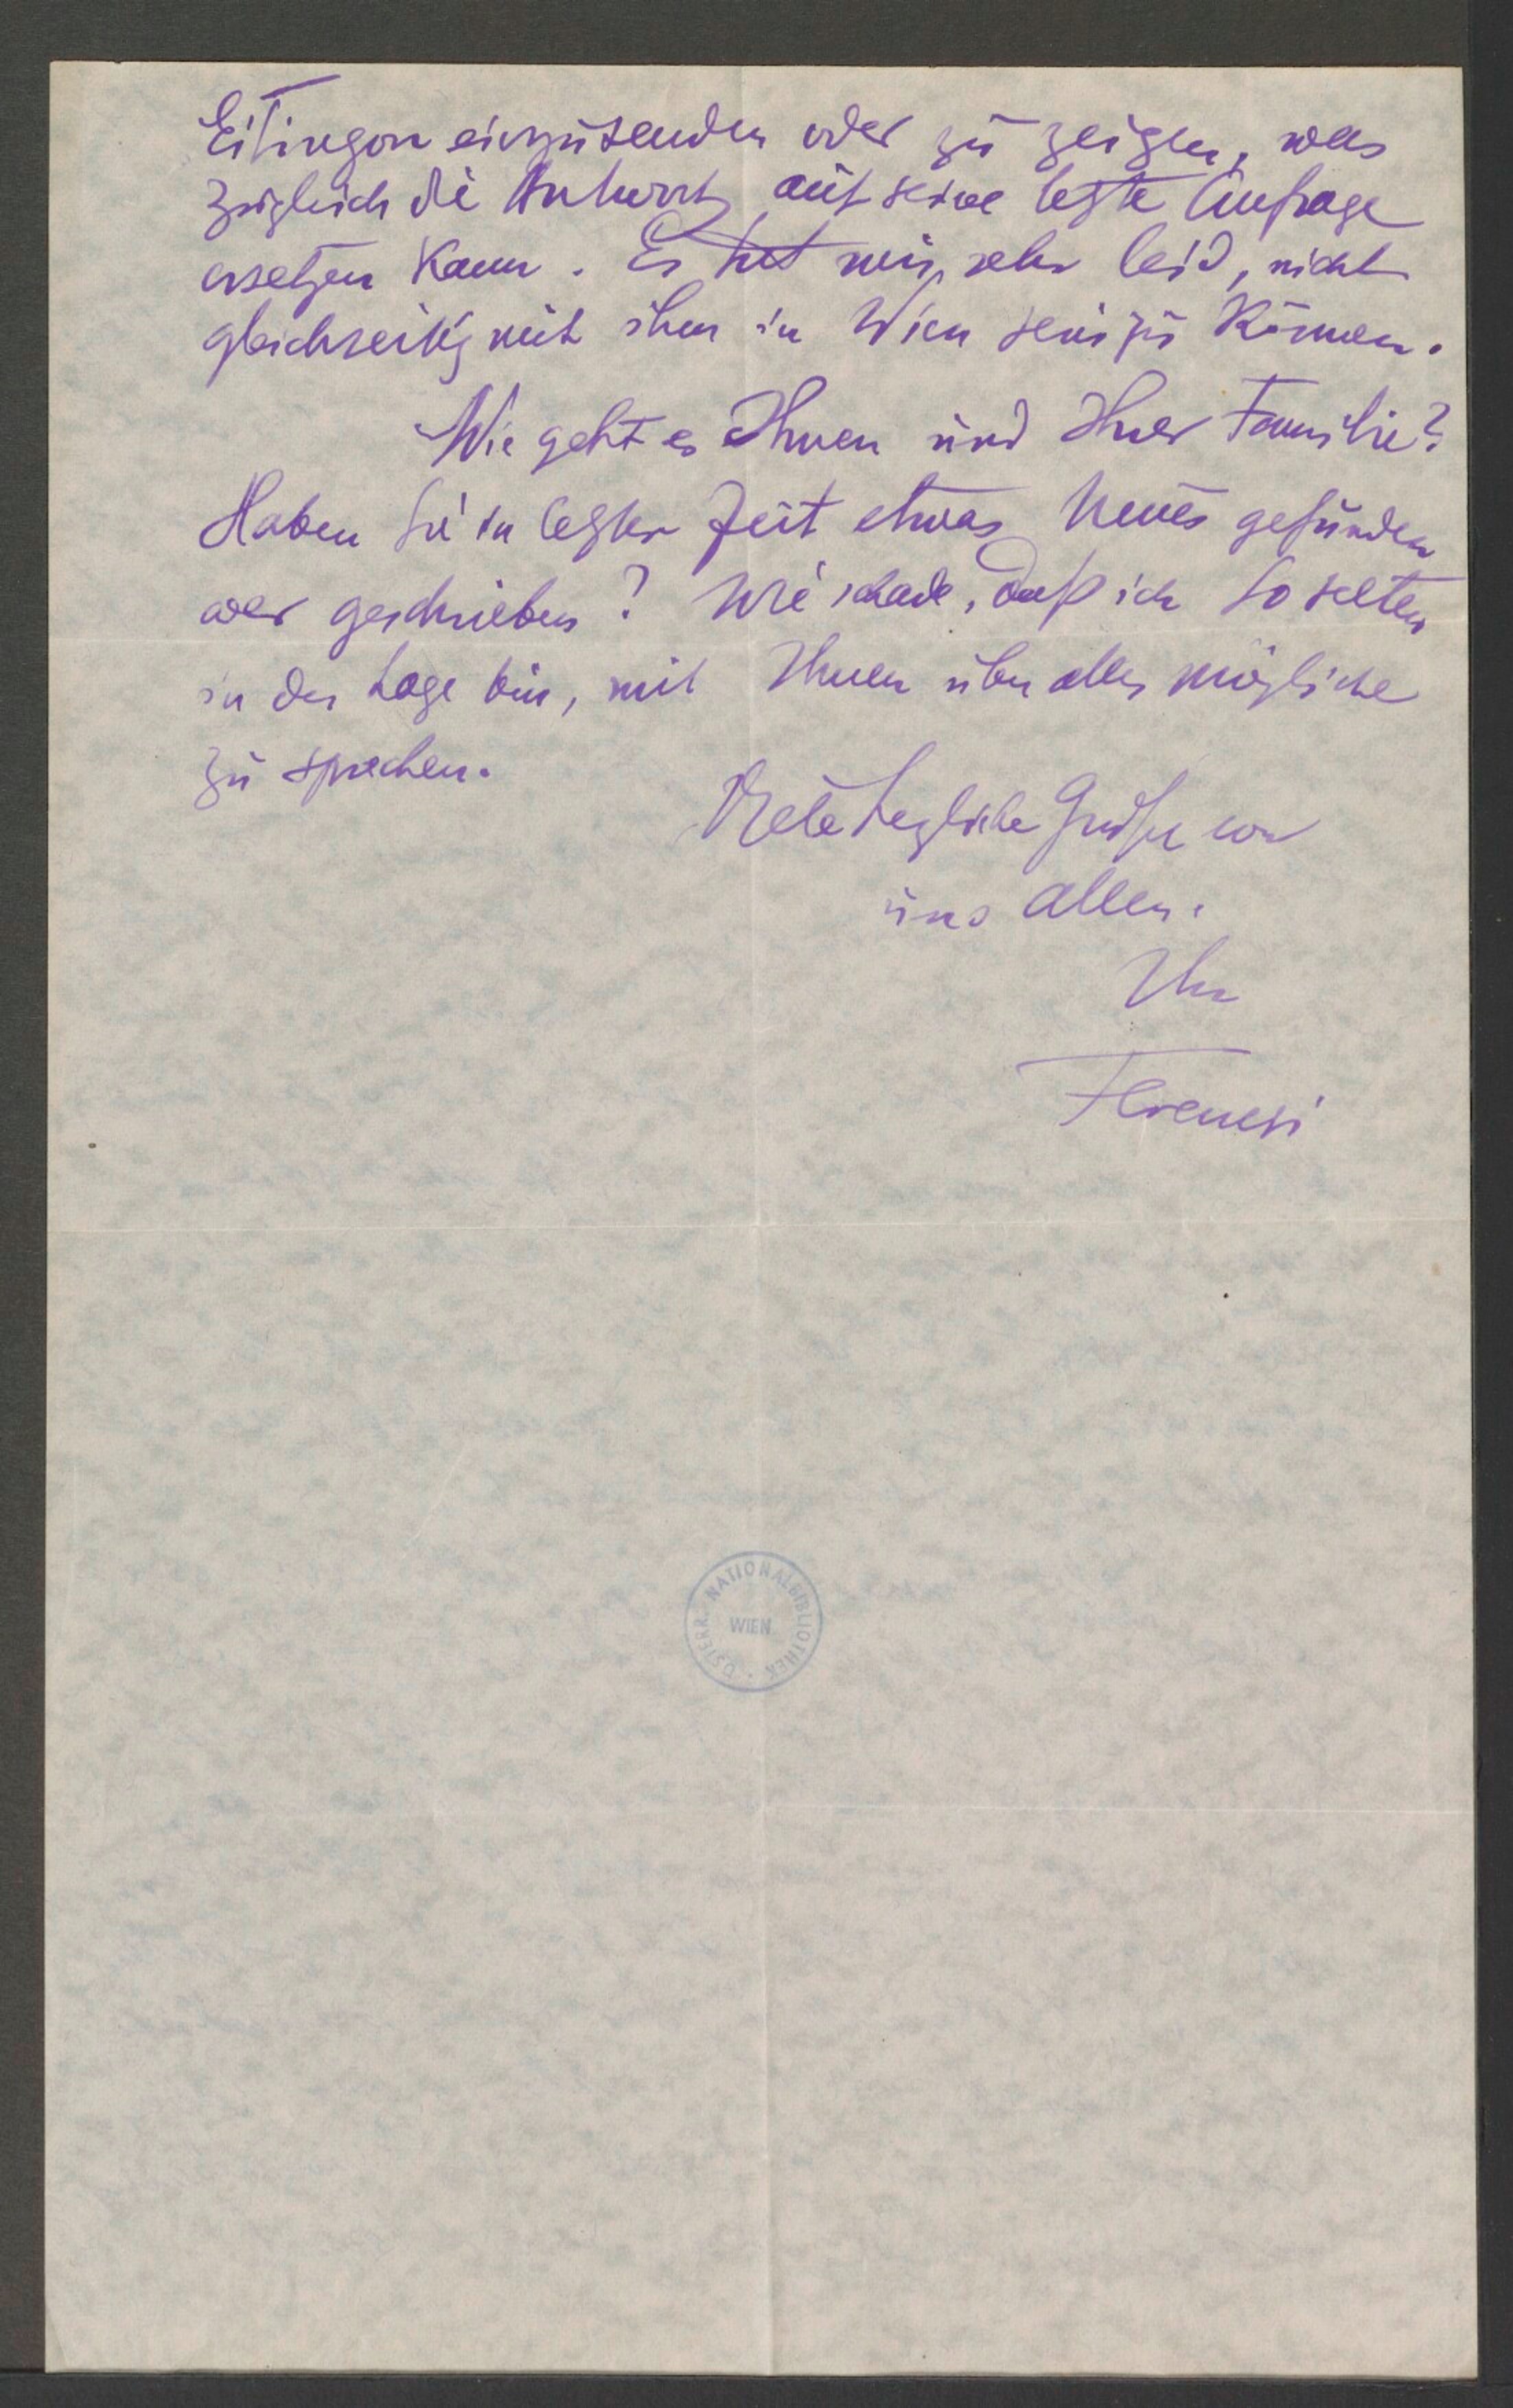 Eitingon einzusenden oder zu zeigen, was
zugleich die Antwort auf seine letzte Anfrage
ersetzen kann. Es tut mir sehr leid, nicht
gleichzeitig mit ihm in Wien sein zu können.
Wie geht es Ihnen und Ihrer Familie?
Haben Sie in letzter Zeit etwas Neues gefunden
oder geschrieben? Wie schade, daß ich so selten
in der Lage bin, mit Ihnen über alles mögliche
zu sprechen.
Viele herzliche Grüße von
uns allen.
Ihr
Ferenczi
ÖSTERR. NATIONALBIBLIOTHEK
WIEN